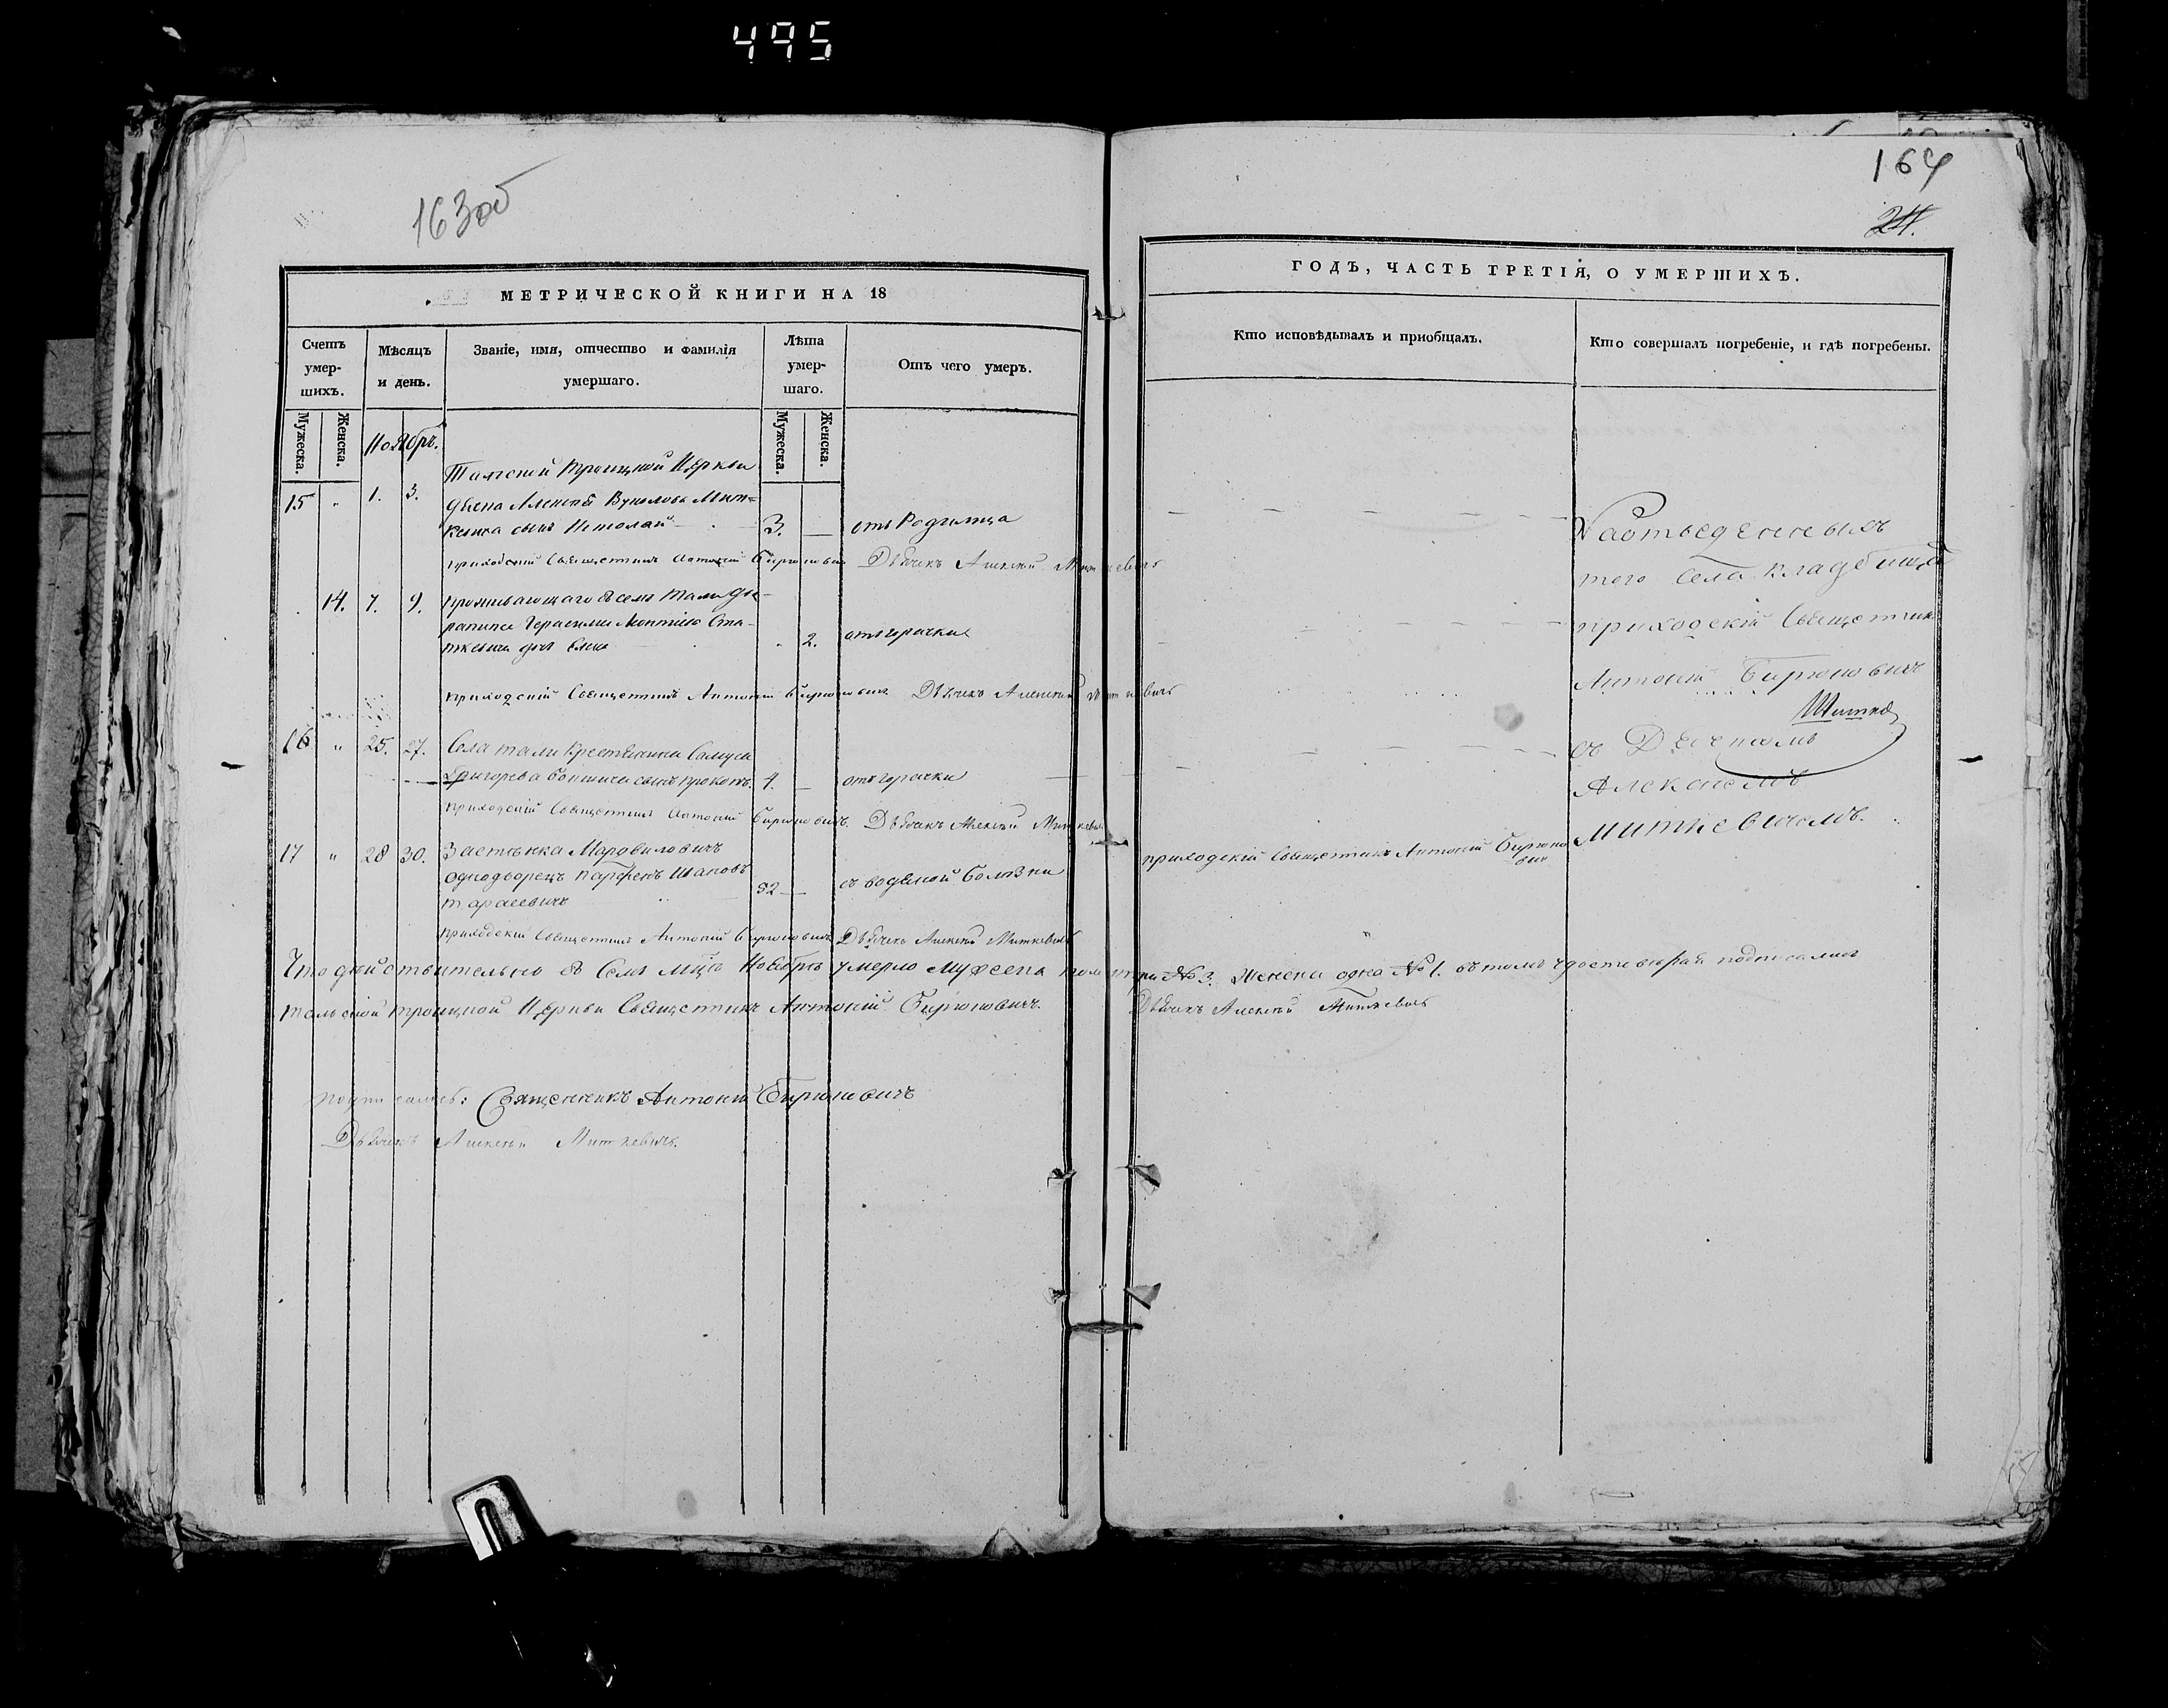 495
163об
164
24.
МЕТРИЧЕСКОЙ КНИГИ НА 18
Счетъ умер-шихъ.
Мѣсяцъ и день.
Званіе, имя, отчество и фамилія умершаго.
Лѣта умер-шаго.
Отъ чего умеръ.
Мужеска.
Женска.
Мужеска.
Женска.
Ноябрь.
Тальской Троицкой Церкви
15 " 1. 3. дьячка Алексѣя Вуколова Мит=
кевича сынъ Николай 3. — отъ Родимца
приходскій Священникъ Антоній Бирюковичъ Дьячекъ Алексѣй Миткевичъ
14. 7. 9. проживающаго въ селѣ Тали
Герасима
дочь Елена " 2. отъ горячки
приходскій Священникъ Антоній Бирюковичъ Дьячекъ Алексѣй Миткевичъ
16 " 25. 27. Села Тали Крестьянина Самуся
Григорьева сынъ Прокопъ. 4. — отъ горячки
приходскій Священникъ Антоній Бирюковичъ. Дьячекъ Алексѣй Миткевичъ
17 " 28 30. Застѣнка
однодворецъ Парфенъ Ивановъ
Тарасевичъ 82 — съ водяной болѣзни
приходскій Священникъ Антоній Бирюковичъ Дьячекъ Алексѣй Миткевичъ
Что дѣйствительно въ семъ мѣсяцѣ Ноябрѣ умерло мужеска пола три № 3. Женска одна № 1. въ томъ удостовѣряя подписались
Тальской Троицкой Церкви Священникъ Антоній Бирюковичъ. Дьячекъ Алексѣй Миткевичъ
Священникъ Антоній Бирюковичъ
Дьячекъ Алексѣй Миткевичъ.
ГОДЪ, ЧАСТЬ ТРЕТІЯ, О УМЕРШИХЪ.
Кто исповѣдывалъ и приобщалъ.
Кто совершалъ погребеніе, и гдѣ погребены.
приходскій Священникъ Антоній Бирюко
вичъ
На отведенныхъ
того села кладбищѣ
приходскій Священникъ
Антоній Бирюковичъ
съ Дьячкомъ
Алексѣемъ
Миткевичемъ.